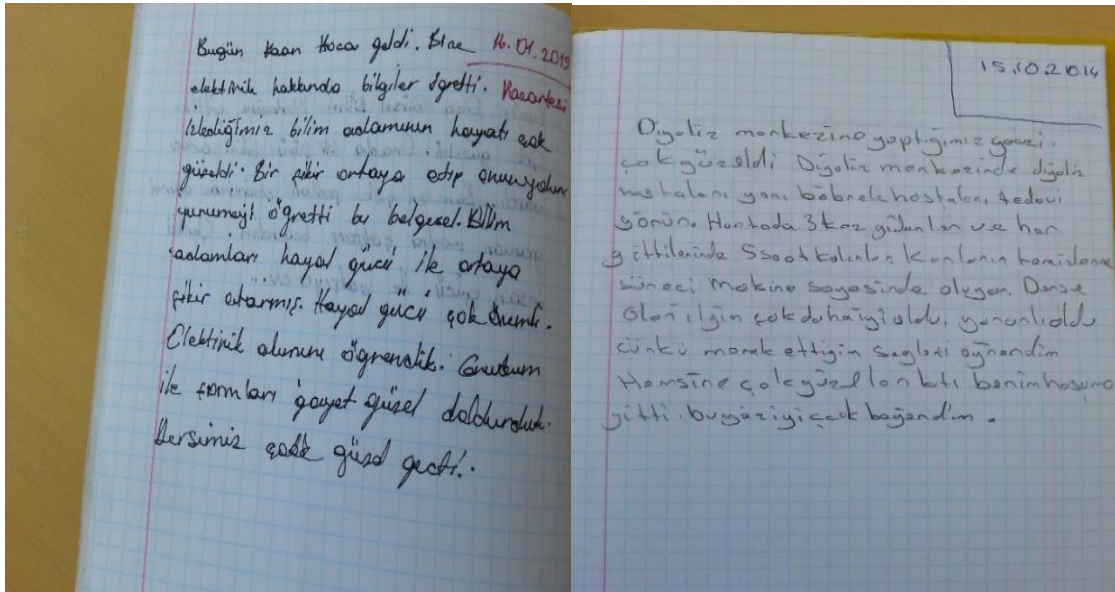 Bugün Kaan Hoca geldi. Bize
16.01.2015
elektirik hakkında bilgiler ögretti.
Pazartesi
İzlediğimiz bilim adamının hayatı çok
güzeldi. Bir fikir ortaya atıp onun
yurumeyi öğretti bu belgesel. Bilim
adamları hayal gücü ile ortaya
fikir atarmış. Hayal gücü çok önemli.
Elektirik alanını öğrendik. Grubum
ile formları gayet güzel doldurduk.
Dersimiz çook güzel geçti.
15.10.2014
Diyaliz merkezine yaptığımız gezi
çok güzeldi Diyaliz merkezinde diyaliz
hastaları yani böbrek hastaları tedavi
görür. Haftada 3 kez giderler ve her
gittilerinde 5 saat kalırlar. Kanların temizlenme
süreci makine sayesinde oluyor. Derse
olan ilgim çok daha iyi oldu, yararlı oldu
çünkü merak ettiğim şeyleri öğrendim
Hemşire çok güzel anlattı benim hoşuma
gitti. bu geziyi çok beğendim.